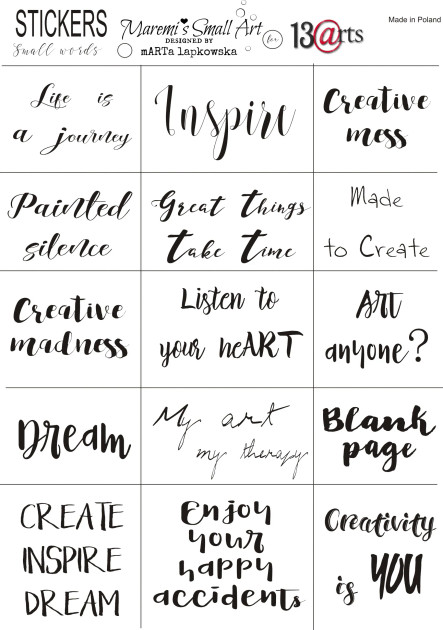 STICKERS
Small words
Maremi's Small Art
DESIGNED BY
mARTa lapkowska
for
13@rts
Made in Poland
Life is
a journey
Inspire
Creative
mess
Painted
silence
Great Things
Take Time
Made
to Create
Creative
madness
Listen to
your heART
Art
anyone?
Dream
My art
my therapy
Blank
page
CREATE
INSPIRE
DREAM
Enjoy
your
happy
accidents
Creativity
is YOU